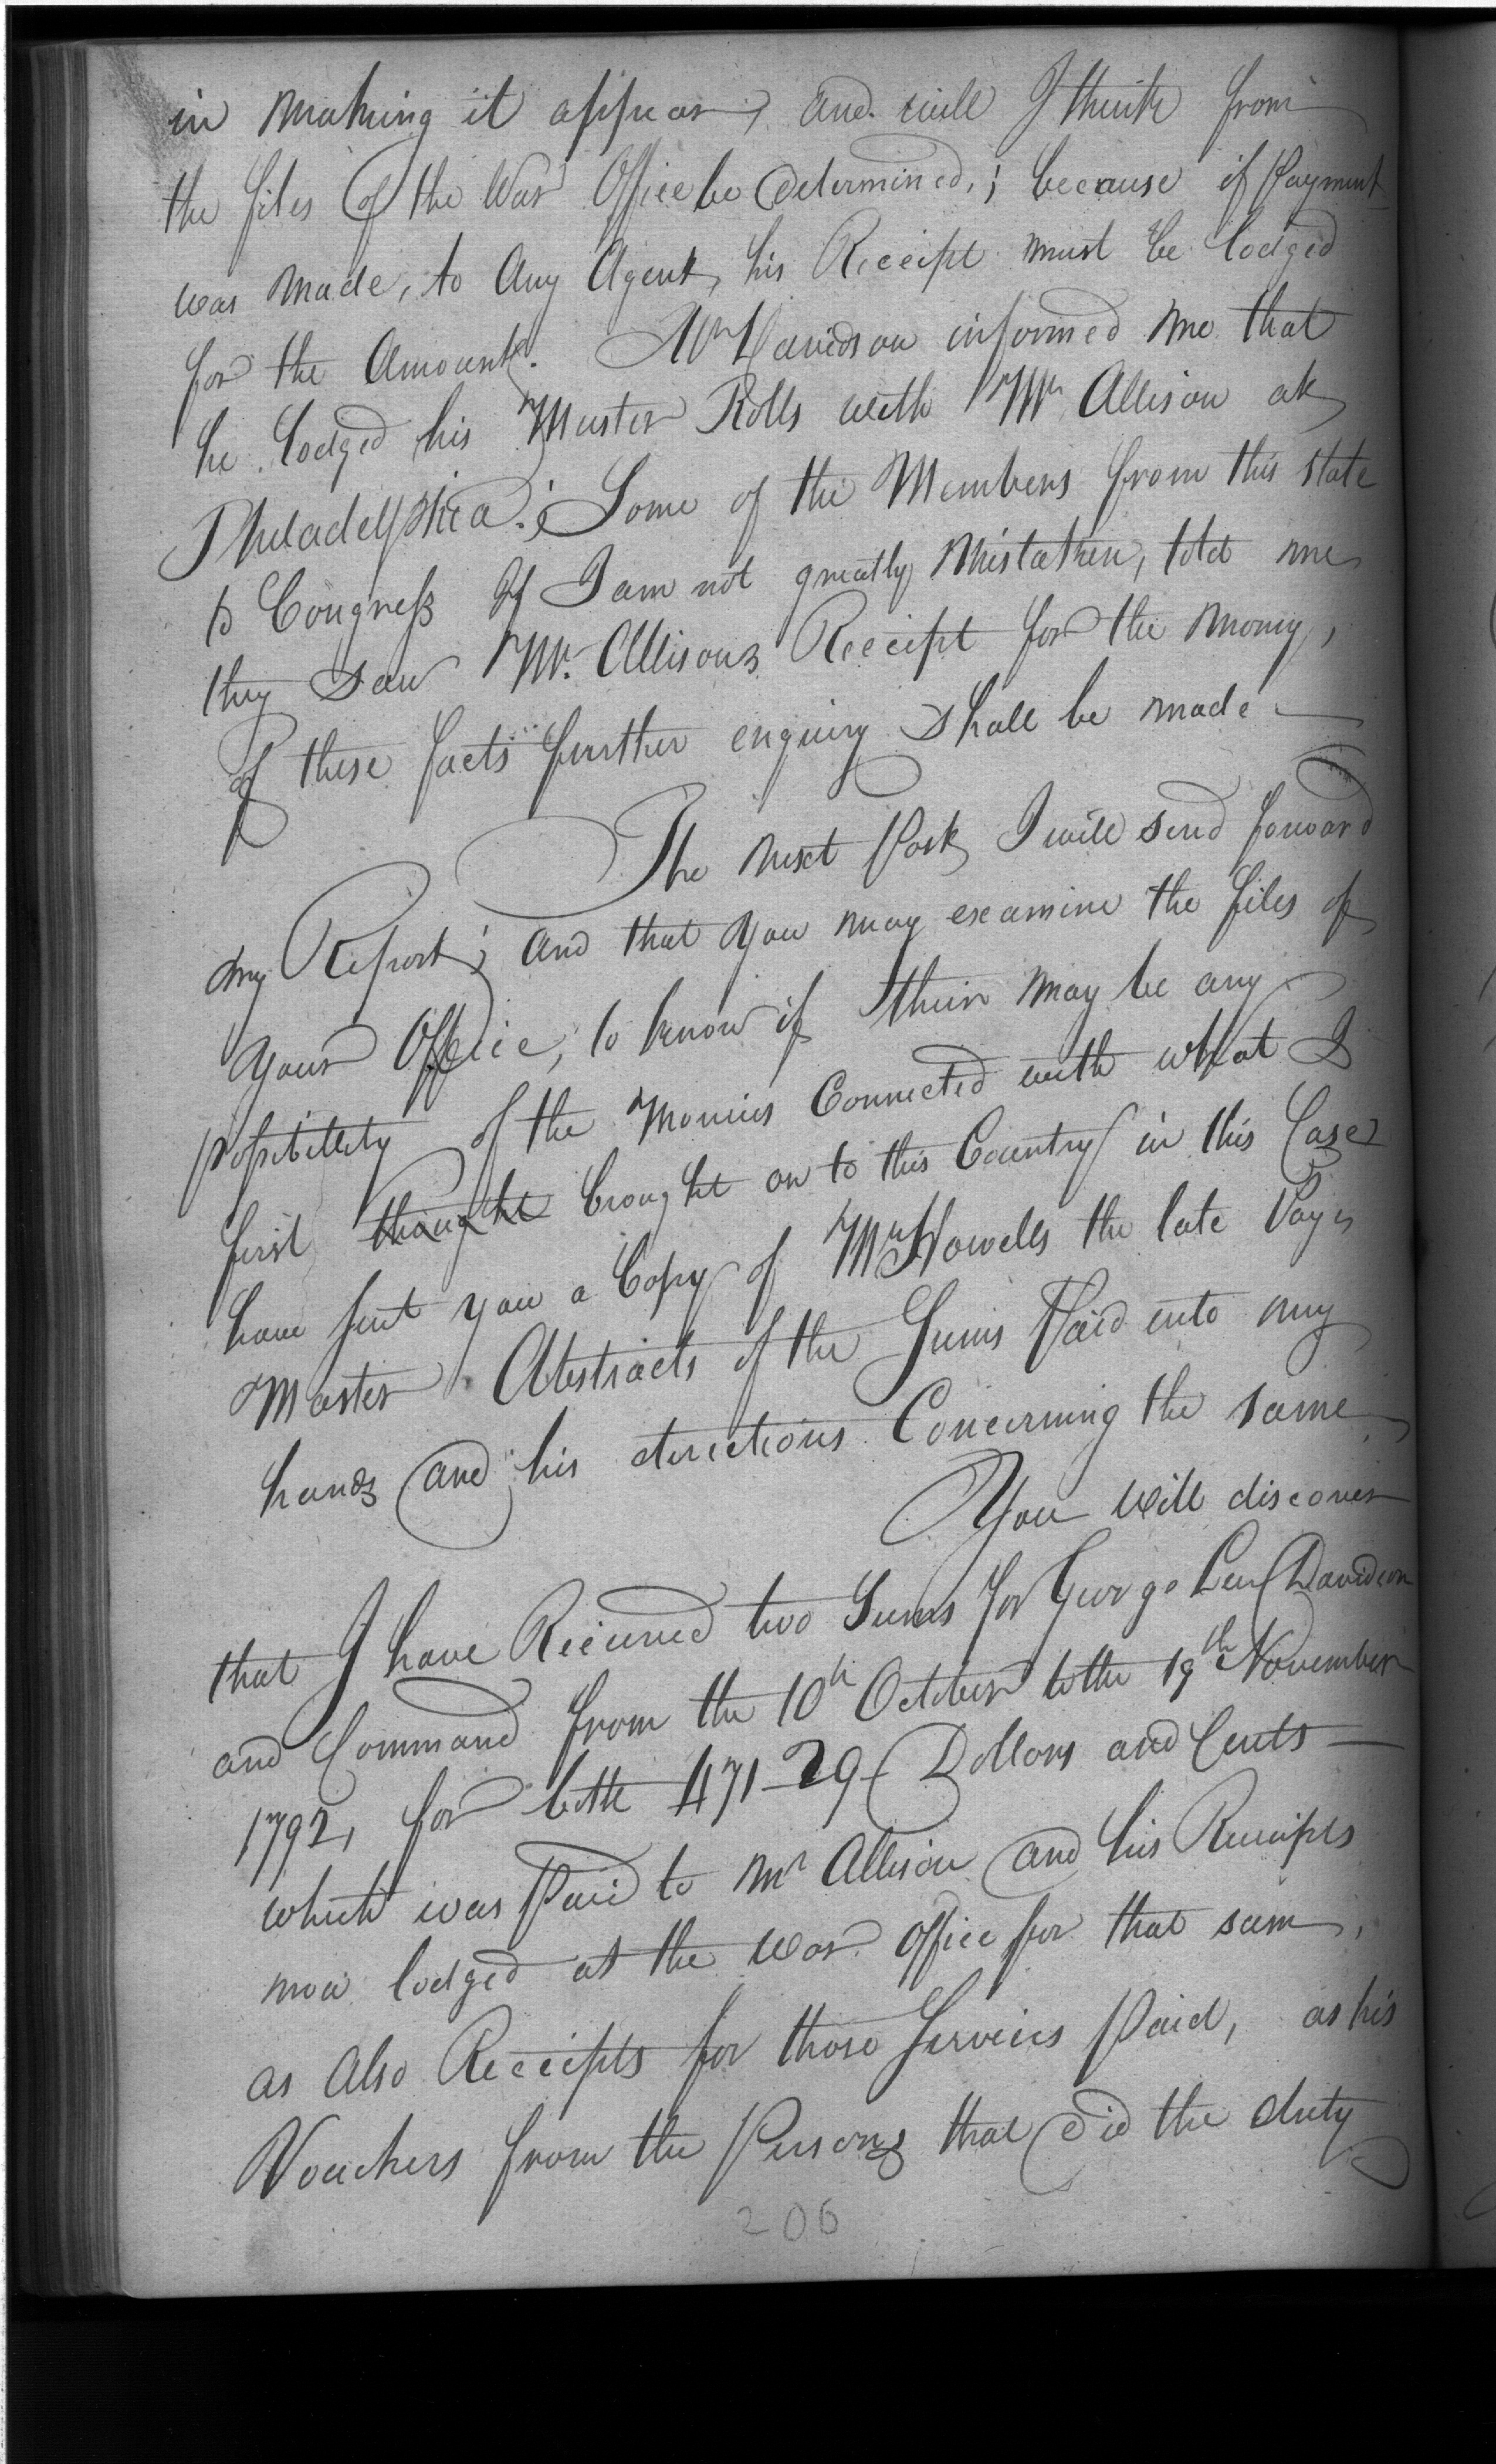 in making it appear, and will I think from
the files of the War Office be determined,; because if Payment
was made, to any Agent, his Receipt must be lodged
for the Amount. Mr Davidson informed me that
he lodged his Muster Rolls with Mr Allison at
Philadelphia.; Some of the Members from this State
to Congress If I am not greatly Mistaken, told me
they saw Mr. Allisons Receipt for the Money,
of these facts further enquiry shall be made
The next Post I will send forward
my Report; and that you may examine the files of
Your Office, to know if their may be any
possibillity of the Monies Connected with what I
first thought brought on to this Country in this Case
have sent you a Copy of Mr Howells the late Pay
Master Abstracts of the Sums Paid into my
hands and his directions Concerning the same
You will discover
that I have Received two Sums for George Lew Davidson
and Command from the 10th October to the 19th November
1792, for both 471-29 Dollars and Cents
which was Paid to Mr Allison and his Receipts
now lodged at the War Office for that sum,
as also Receipts for those Services Paid, as his
Vouchers from the Persons that did the duty
206